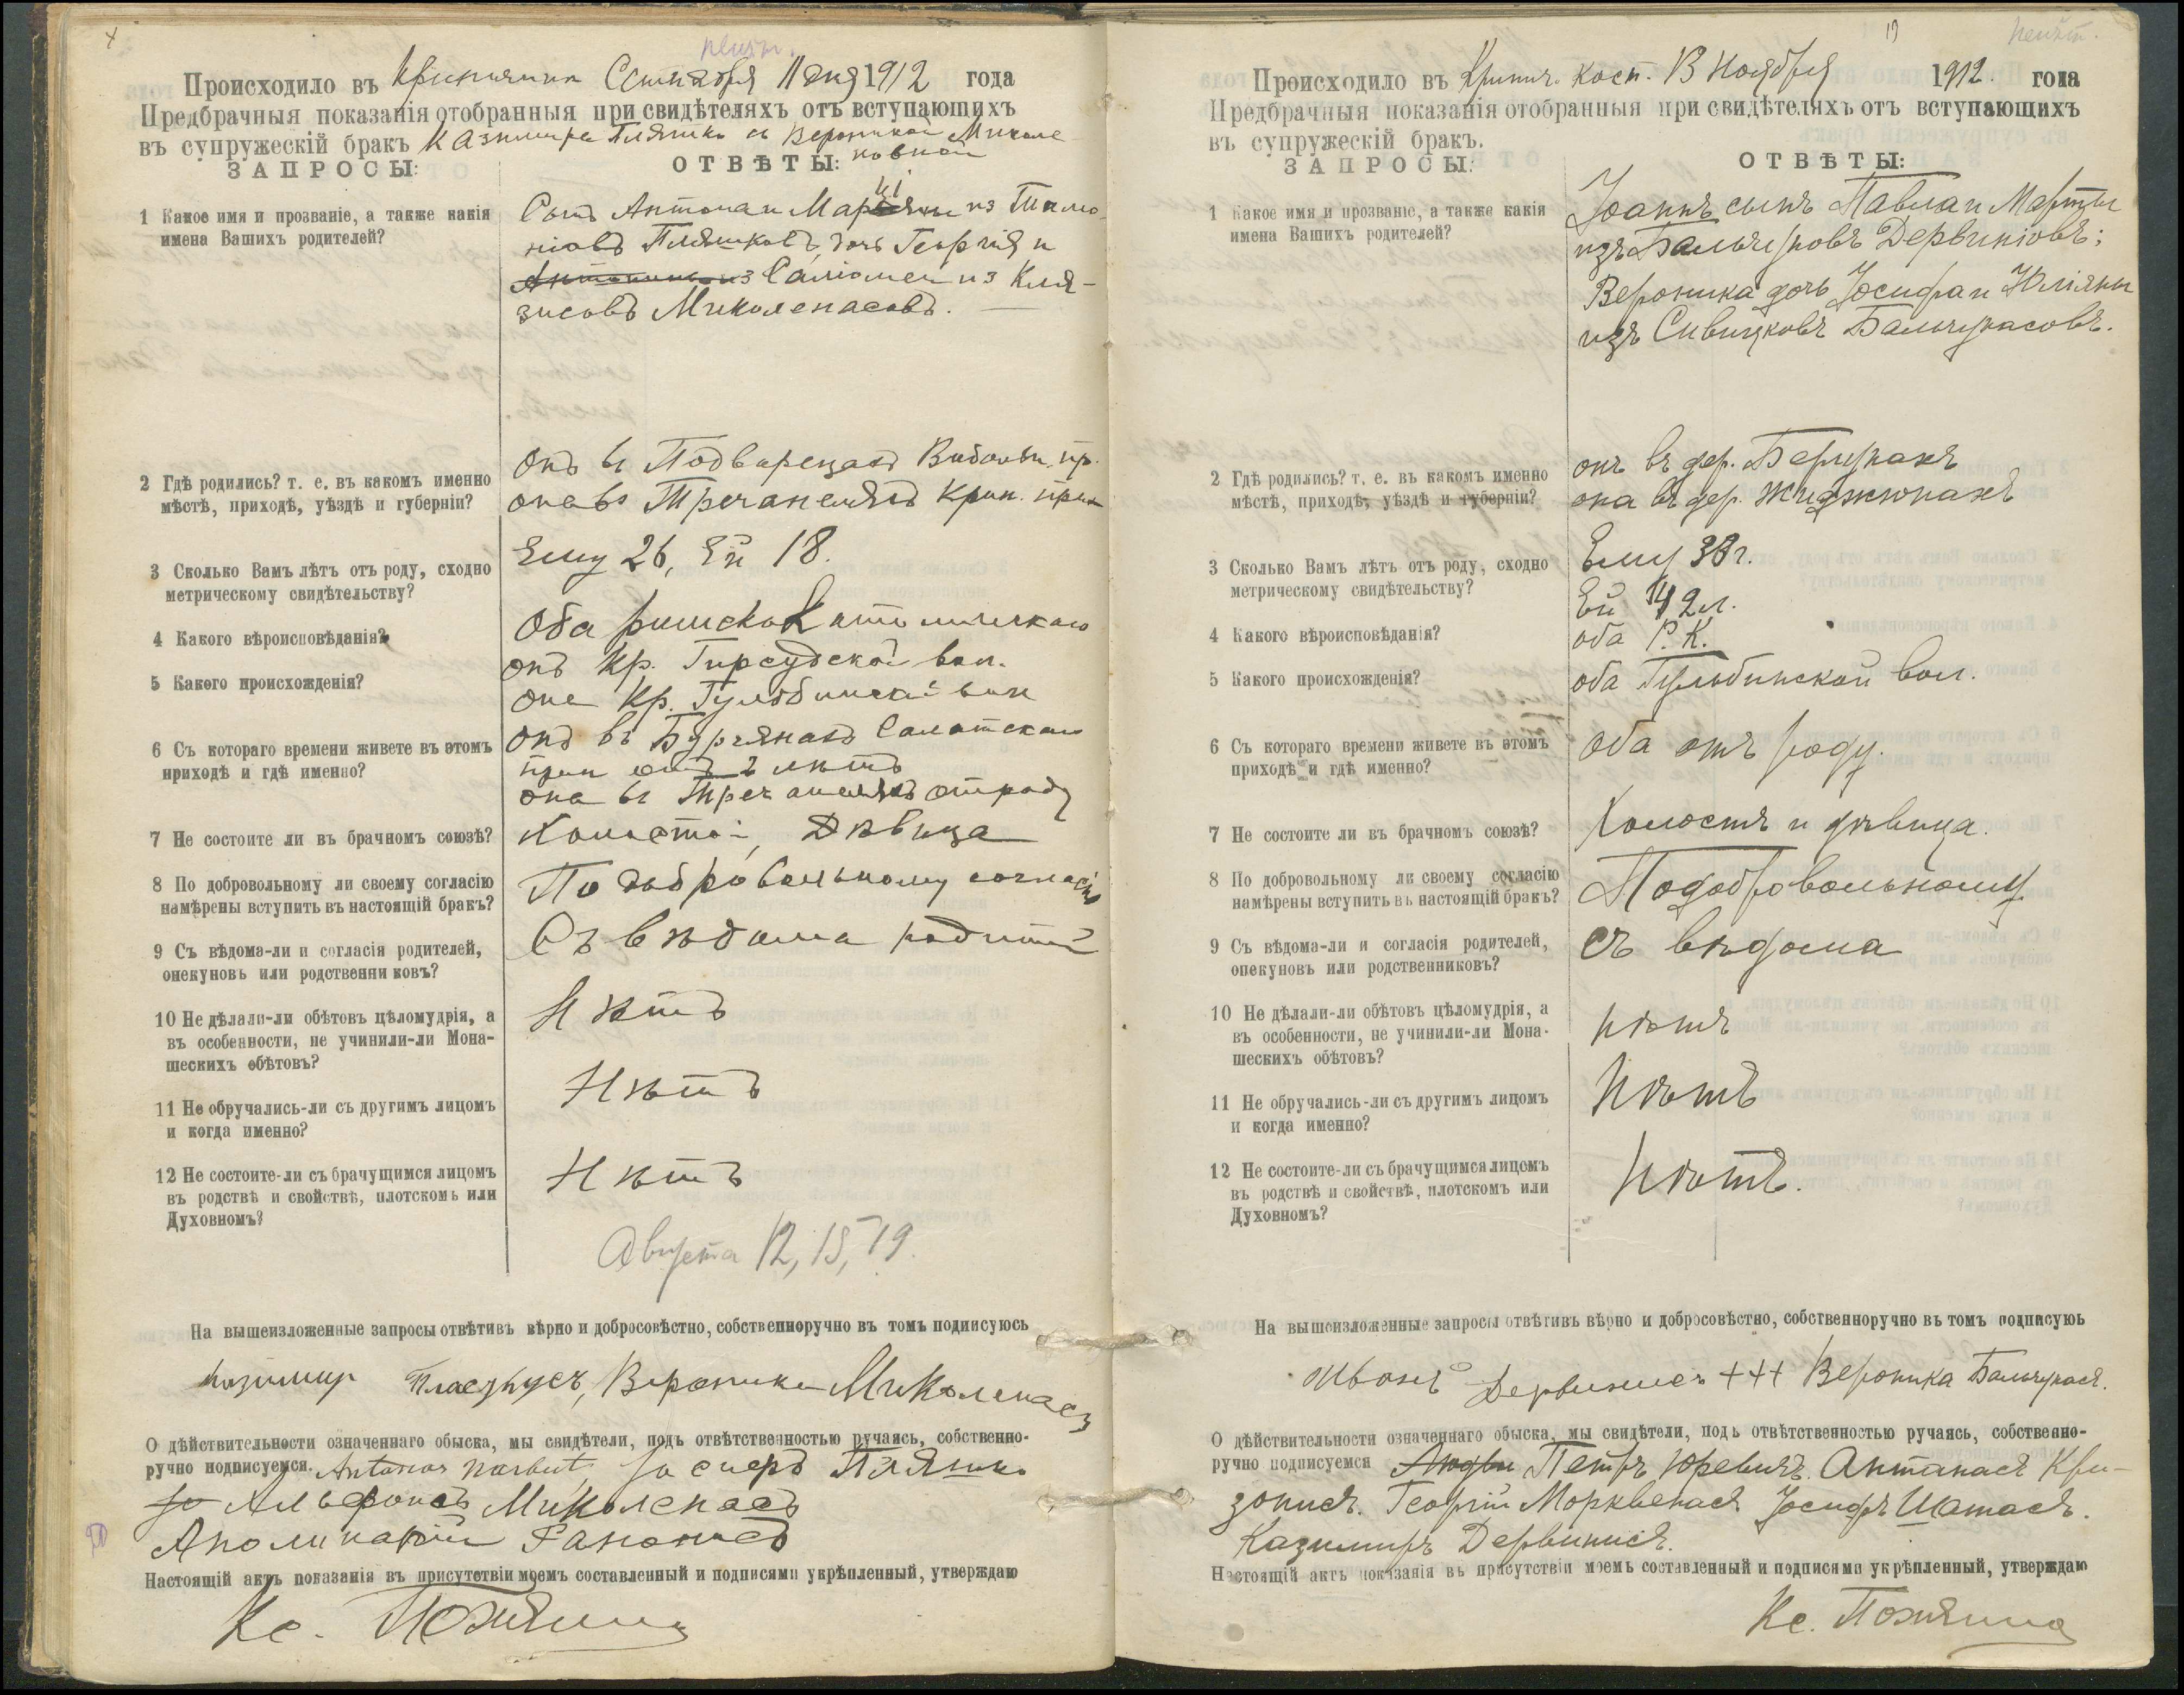 Происходило въ Крипичинк Сентября 11 дня 1912 года
Предбрачныя показанія отобранныя при свидѣтеляхъ отъ вступающихъ
въ супружескій бракъ Казимира Пляшко съ Вероникой Миколе
новной
ЗАПРОСЫ:
ОТВѢТЫ:
1 Какое имя и прозваніе, а также какія
имена Вашихъ родителей?
Сынъ Антона и Маріи из
Пляшковъ, дочь Георгія и
из Саломеи из Кля-
зисовъ Миколенасовъ.
2 Гдѣ родились? т. е. въ какомъ именно
мѣстѣ, приходѣ, уѣздѣ и губерніи?
онъ въ Подвирецахъ пр.
она въ Тречанеляхъ Крип. прих
3 Сколько Вамъ лѣтъ отъ роду, сходно
метрическому свидѣтельству?
Ему 26, Ей 18.
4 Какого вѣроисповѣданія?
Оба римско Католическаго
5 Какого происхожденія?
онъ кр. Гирсудской вол.
она кр. Гульбинской вол
6 Съ котораго времени живете въ этомъ
приходѣ и гдѣ именно?
онъ въ Бурчянахъ Салатскаго
прих отъ 2 лѣтъ
она въ Тречанеляхъ отъ роду
7 Не состоите ли въ брачномъ союзѣ?
Холостой, Дѣвица
8 По добровольному ли своему согласію
намѣрены вступить въ настоящій бракъ?
По добровольному согласію
9 Съ вѣдома-ли и согласія родителей,
опекуновъ или родственниковъ?
Съ вѣдома родител
10 Не дѣлали-ли обѣтовъ цѣломудрія, а
въ особенности, не учинили-ли Мона-
шескихъ обѣтовъ?
Нѣтъ
11 Не обручались-ли съ другимъ лицомъ
и когда именно?
Нѣтъ
12 Не состоите-ли съ брачущимся лицомъ
въ родствѣ и свойствѣ, плотскомъ или
Духовномъ?
Нѣтъ
Августа 12, 15, 19.
На вышеизложенные запросы отвѣтивъ вѣрно и добросовѣстно, собственноручно въ томъ подписуюсь
Казимир Пласкусъ, Вероника Миколенась
О дѣйствительности означеннаго обыска, мы свидѣтели, подъ отвѣтственностью ручаясь, собственно-
ручно подписуемся. Antonas Narbut, Пляшко
Альфонсъ Миколенасъ
Аполинарій
Настоящій актъ показанія въ присутствіи моемъ составленный и подписями укрѣпленный, утверждаю
Кс. Пожяина
Происходило въ Крипич. кост. 13 Ноября 1912. года
Предбрачныя показанія отобранныя при свидѣтеляхъ отъ вступающихъ
въ супружескій бракъ.
ЗАПРОСЫ:
ОТВѢТЫ:
1 Какое имя и прозваніе, а также какія
имена Вашихъ родителей?
Іоаннъ сынъ Павла и Марты
изъ Бальчуновъ Дервинисовъ;
Вероника дочь Іосифа и Юліяны
изъ Сивицковъ Бальчунасовъ.
2 Гдѣ родились? т. е. въ какомъ именно
мѣстѣ, приходѣ, уѣздѣ и губерніи?
онъ въ дер. Берчунахъ
она въ дер. Жиджюнахъ
3 Сколько Вамъ лѣтъ отъ роду, сходно
метрическому свидѣтельству?
Ему 38 г.
Ей 42 л.
4 Какого вѣроисповѣданія?
оба Р. К.
5 Какого происхожденія?
оба Гульбинской вол.
6 Съ котораго времени живете въ этомъ
приходѣ и гдѣ именно?
Оба отъ роду.
7 Не состоите ли въ брачномъ союзѣ?
Холостъ и дѣвица.
8 По добровольному ли своему согласію
намѣрены вступить въ настоящій бракъ?
По добровольному
9 Съ вѣдома-ли и согласія родителей,
опекуновъ или родственниковъ?
Съ вѣдома
10 Не дѣлали-ли обѣтовъ цѣломудрія, а
въ особенности, не учинили-ли Мона-
шескихъ обѣтовъ?
Нѣтъ
11 Не обручались-ли съ другимъ лицомъ
и когда именно?
Нѣтъ
12 Не состоите-ли съ брачущимся лицомъ
въ родствѣ и свойствѣ, плотскомъ или
Духовномъ?
Нѣтъ.
На вышеизложенные запросы отвѣтивъ вѣрно и добросовѣстно, собственноручно въ томъ подписуюь
Ивонъ Дервинись +++ Вероника Бальчунась.
О дѣйствительности означеннаго обыска, мы свидѣтели, подъ отвѣтственностью ручаясь, собственно-
ручно подписуемся Петръ Юревичъ. Антанасъ Кри-
зонисъ. Георгій Морквенасъ Іосифъ Шатасъ.
Казимиръ Дервинисъ.
Настоящій актъ показанія въ присутствіи моемъ составленный и подписями укрѣпленный, утверждаю
Кс. Пожяина